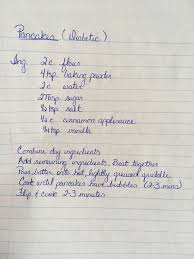 Pancakes (Diabetic)
Ing. 2 c flour
4 tsp baking powder
2 c water
2 Tbsp sugar
1/2 tsp salt
1/2 c cinnamon applesauce
1/4 tsp vanilla
Combine dry ingredients
Add remaining ingredients. Beat together
Pour batter onto hot, lightly greased griddle
Cook until pancakes have bubbles (2-3 mins)
Flip & cook 2-3 minutes